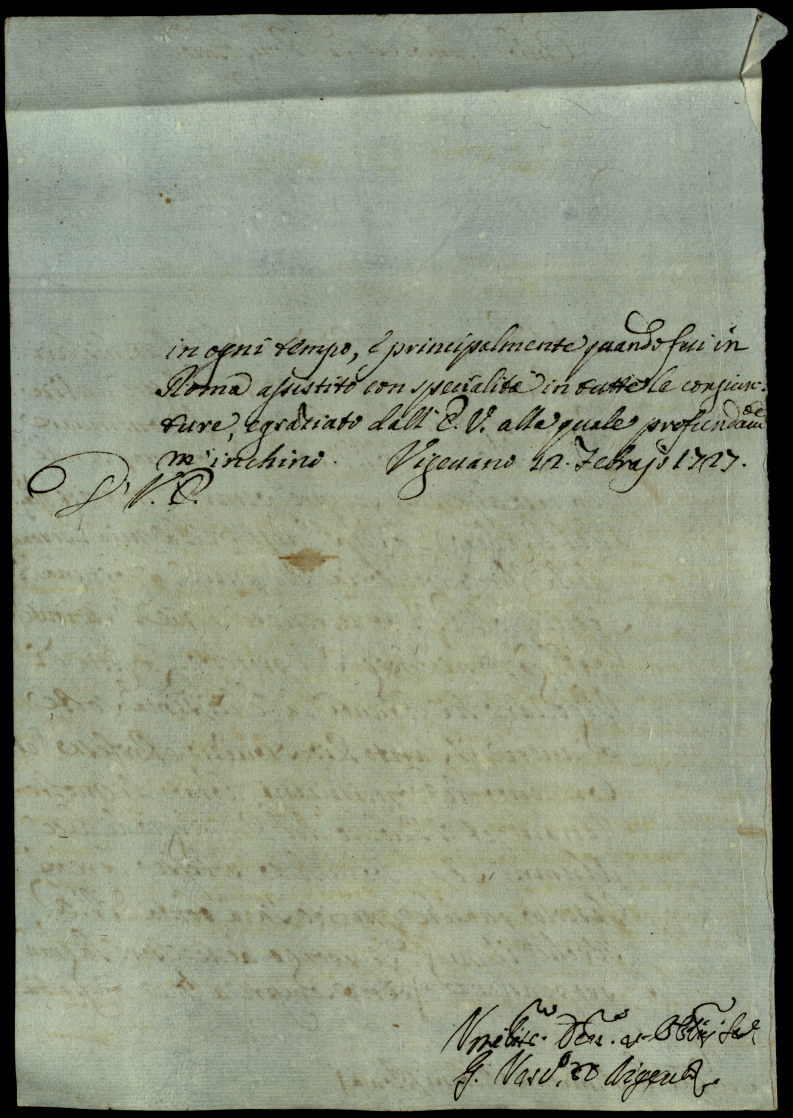 in ogni tempo, e principalmente quando fui in
Roma assistito con specialità in tutte le congiun-
ture, e graziato dall' E. V. alla quale profundam.te
m' inchino. Vigevano 12. Febrajo 1727.
D' V. E.
Umiliss.o Dev.
G. Vesc.o di Vigev.o